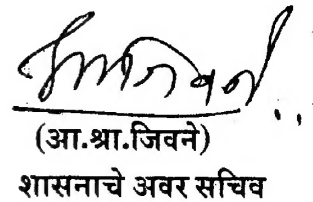 (आ.श्रा.जिवने)
शासनाचे अवर सचिव